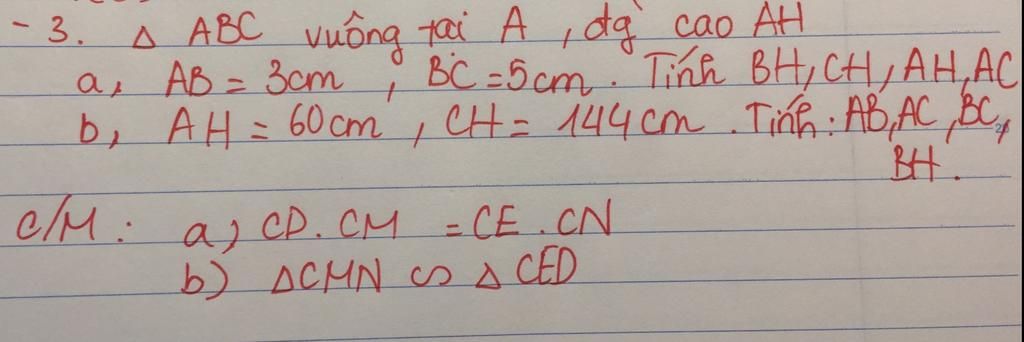 - 3. Δ ABC vuông tại A , đg cao AH
a, AB = 3cm , BC = 5cm . Tính BH, CH, AH, AC
b, AH = 60cm , CH = 144cm . Tính : AB, AC, BC,
BH.
C/M : a) CD . CM = CE . CN
b) ΔCMN ∽ ΔCED